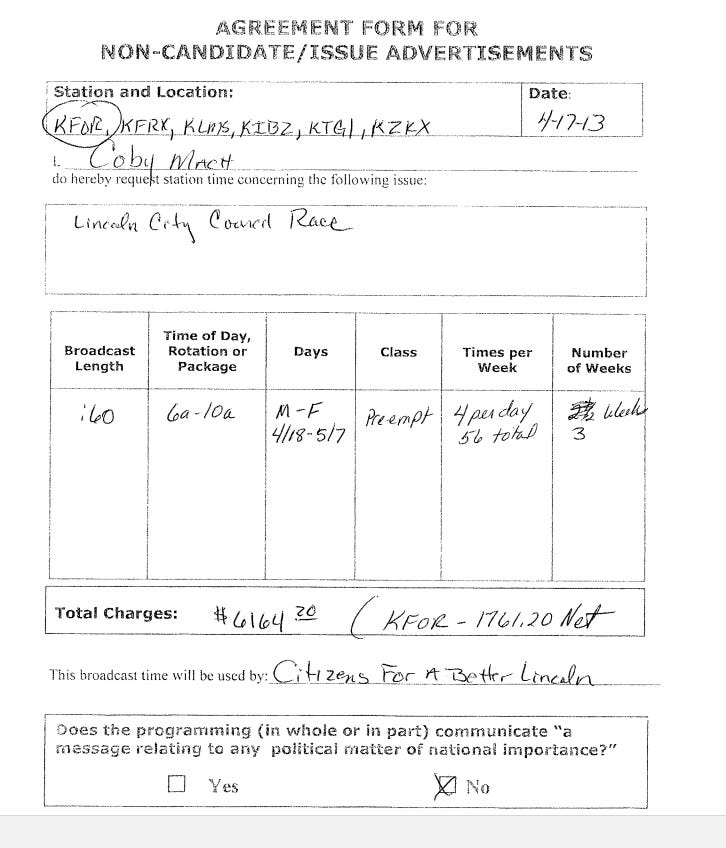 AGREEMENT FORM FOR
NON-CANDIDATE/ISSUE ADVERTISEMENTS
Station and Location:
Date:
KFOR, KFRX, KLMS, KIBZ, KTGL, KZKX
4-17-13
I, Coby Mach
do hereby request station time concerning the following issue:
Lincoln City Council Race
Broadcast Length
Time of Day, Rotation or Package
Days
Class
Times per Week
Number of Weeks
:60
6a-10a
M-F
4/18-5/7
Preempt
4 per day
56 total
Weeks
3
Total Charges: $6164.20 (KFOR - 1761.20 Net
This broadcast time will be used by: Citizens For A Better Lincoln
Does the programming (in whole or in part) communicate "a
message relating to any political matter of national importance?"
Yes
No